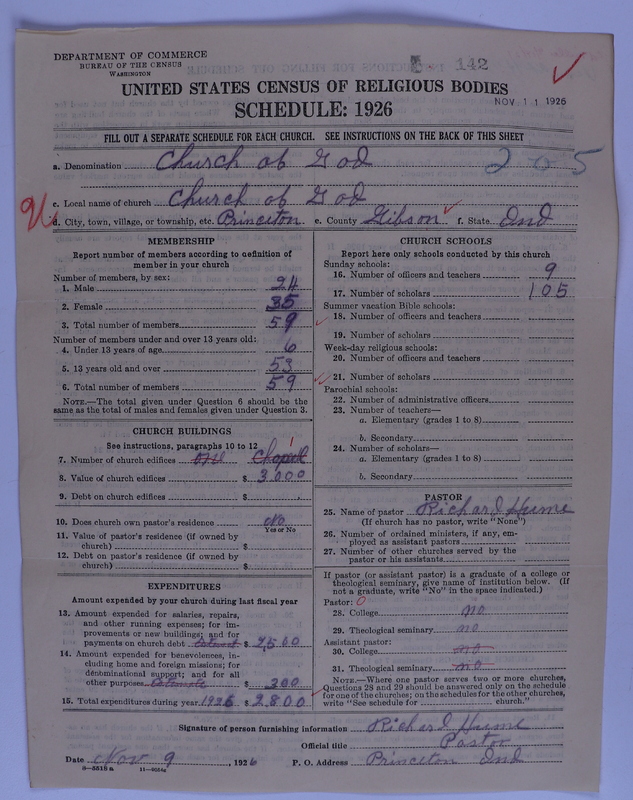 DEPARTMENT OF COMMERCE
BUREAU OF THE CENSUS
WASHINGTON
142
UNITED STATES CENSUS OF RELIGIOUS BODIES
SCHEDULE: 1926
NOV 11 1926
FILL OUT A SEPARATE SCHEDULE FOR EACH CHURCH. SEE INSTRUCTIONS ON THE BACK OF THIS SHEET
a. Denomination Church of God 205
c. Local name of church Church of God
d. City, town, village, or township, etc. Princeton e. County Gibson f. State Ind
MEMBERSHIP
Report number of members according to definition of
member in your church
Number of members, by sex:
1. Male 24
2. Female 35
3. Total number of members 59
Number of members under and over 13 years old:
4. Under 13 years of age 6
5. 13 years old and over 53
6. Total number of members 59
NOTE.—The total given under Question 6 should be
the same as the total of males and females given under Question 3.
CHURCH BUILDINGS
See instructions, paragraphs 10 to 12
7. Number of church edifices one Chapel 1
8. Value of church edifices $ 3000
9. Debt on church edifices $
10. Does church own pastor's residence No
Yes or No
11. Value of pastor's residence (if owned by
church) $
12. Debt on pastor's residence (if owned by
church) $
EXPENDITURES
Amount expended by your church during last fiscal year
13. Amount expended for salaries, repairs,
and other running expenses; for im-
provements or new buildings; and for
payments on church debt $ 2500
14. Amount expended for benevolences, in-
cluding home and foreign missions; for
denominational support; and for all
other purposes $ 300
15. Total expenditures during year 1926 $ 2800
CHURCH SCHOOLS
Report here only schools conducted by this church
Sunday schools:
16. Number of officers and teachers 9
17. Number of scholars 105
Summer vacation Bible schools:
18. Number of officers and teachers
19. Number of scholars
Week-day religious schools:
20. Number of officers and teachers
21. Number of scholars
Parochial schools:
22. Number of administrative officers
23. Number of teachers—
a. Elementary (grades 1 to 8)
b. Secondary
24. Number of scholars—
a. Elementary (grades 1 to 8)
b. Secondary
PASTOR
25. Name of pastor Richard Hume
(If church has no pastor, write "None")
26. Number of ordained ministers, if any, em-
ployed as assistant pastors
27. Number of other churches served by the
pastor or his assistants
If pastor (or assistant pastor) is a graduate of a college or
theological seminary, give name of institution below. (If
not a graduate, write "No" in the space indicated.)
Pastor: 0
28. College no
29. Theological seminary no
Assistant pastor:
30. College no
31. Theological seminary no
NOTE.—Where one pastor serves two or more churches,
Questions 28 and 29 should be answered only on the schedule
for one of the churches; on the schedules for the other churches,
write "See schedule for church."
Signature of person furnishing information Richard Hume
Official title Pastor
Date Nov 9, 1926 P. O. Address Princeton Ind